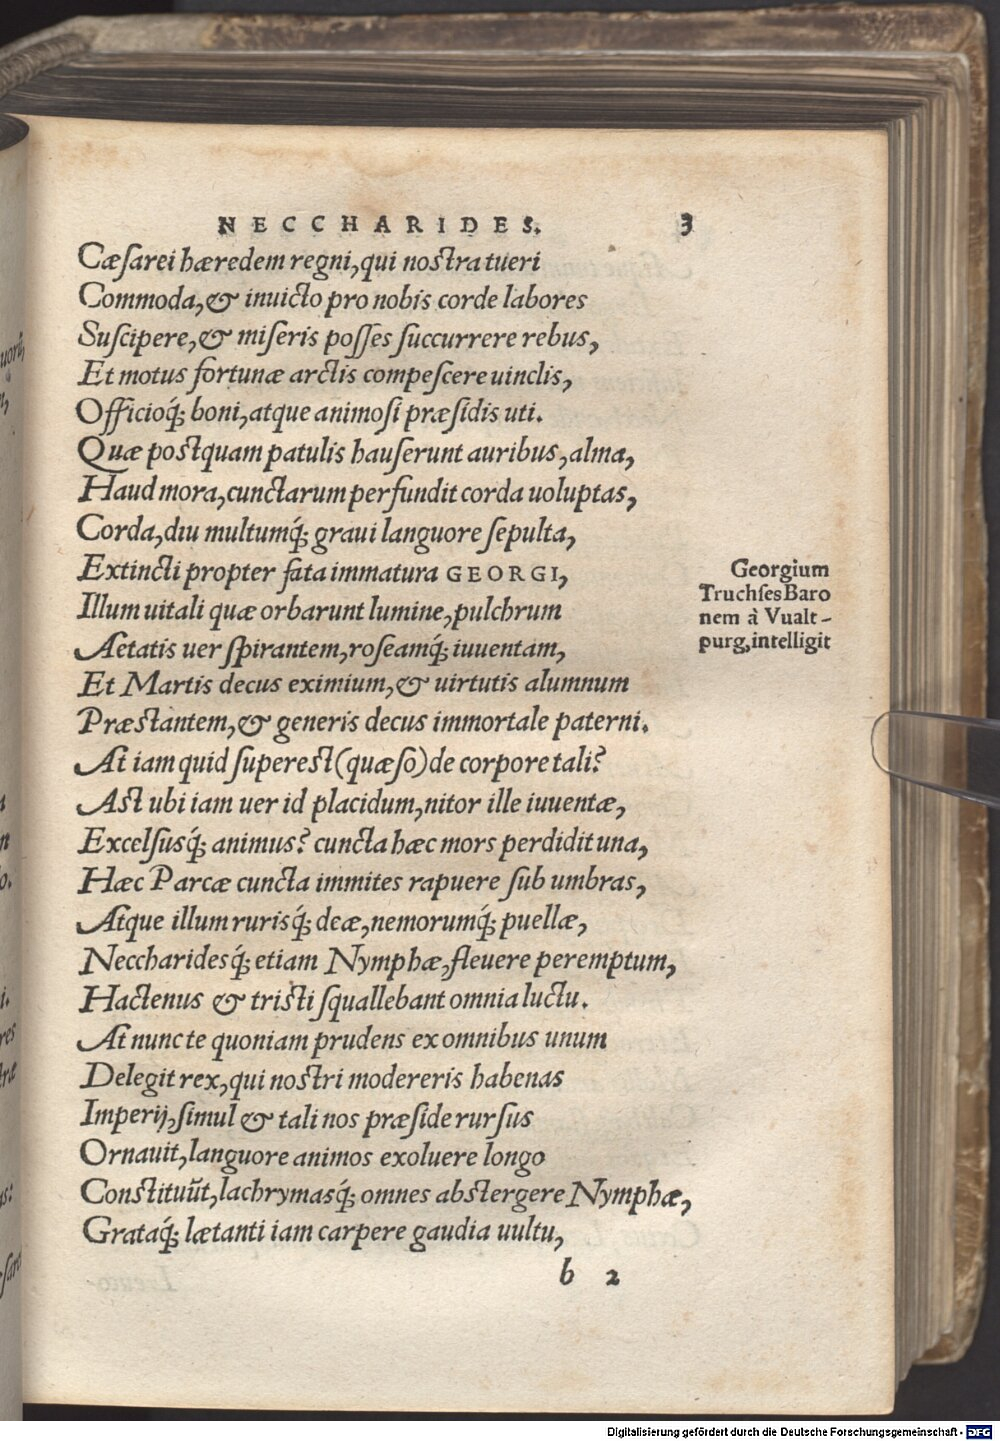 NECCHARIDES. 3
Cæſarei hæredem regni, qui noſtra tueri
Commoda, & inuicto pro nobis corde labores
Suſcipere, & miſeris poſſes ſuccurrere rebus,
Et motus fortunæ arctis compeſcere uinclis,
Officioq́; boni, atque animoſi præſidis uti.
Quæ poſtquam patulis hauſerunt auribus, alma,
Haud mora, cunctarum perfundit corda uoluptas,
Corda, diu multumq́; graui languore ſepulta,
Extincti propter fata immatura GEORGI,
Illum uitali quæ orbarunt lumine, pulchrum
Aetatis uer ſpirantem, roſeamq́; iuuentam,
Et Martis decus eximium, & uirtutis alumnum
Præſtantem, & generis decus immortale paterni.
At iam quid ſupereſt (quæſo) de corpore tali?
Aſt ubi iam uer id placidum, nitor ille iuuentæ,
Excelſusq́; animus? cuncta hæc mors perdidit una,
Hæc Parcæ cuncta immites rapuere ſub umbras,
Atque illum rurisq́; deæ, nemorumq́; puellæ,
Neccharidesq́; etiam Nymphæ, fleuere peremptum,
Hactenus & triſti ſquallebant omnia luctu.
At nunc te quoniam prudens ex omnibus unum
Delegit rex, qui noſtri modereris habenas
Imperij, ſimul & tali nos præſide rurſus
Ornauit, languore animos exoluere longo
Conſtituũt, lachrymasq́; omnes abſtergere Nymphæ,
Grataq́; lætanti iam carpere gaudia uultu,
b 2
Georgium
Truchſes Baro
nem à Vualt-
purg, intelligit
Digitalisierung gefördert durch die Deutsche Forschungsgemeinschaft - DFG